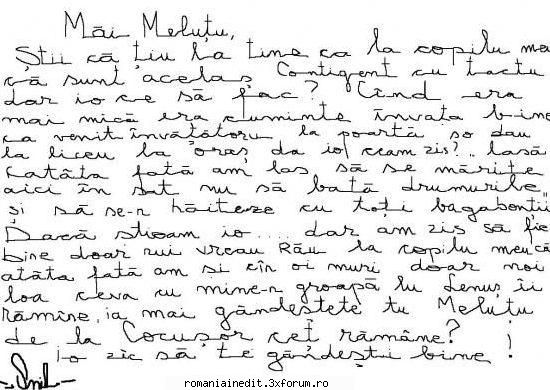 Măi Meluțu,
Știi că țiu la tine ca la copilu meu
că sunt acelaș Contigent cu tactu
dar io ce să fac? Cînd era
mai mică era cuminte învața bine
ca venit învățătoru la poartă so dau
la liceu la oraș da io ceam zis? "lasă
catâta fată am las să se mărite
aici în sat nu să bată drumurile"
și să se-n hăiteze cu toți bagabonții
Dacă știeam io.... dar am zis să fie
bine doar nui vreau Rău la copilu meu că
atâta fată am si cîn oi muri doar noi
loa ceva cu mine-n groapă lu Lenuș îi
rămîne, ia mai gândeștete tu Meluțu
de la Cocușor ceț rămâne?
io zic să te gîndești bine!
romaniainedit.3xforum.ro